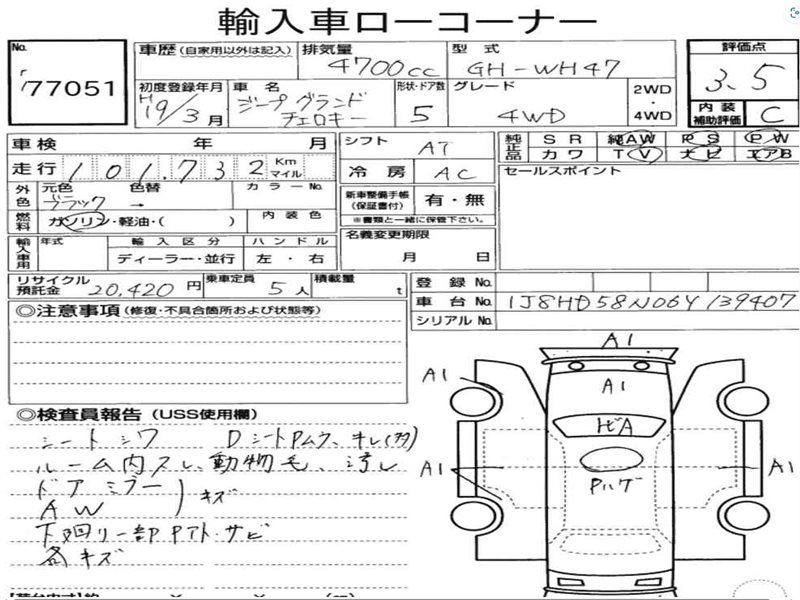 輸入車ローコーナー
No.
77051
車歴 (自家用以外は記入) 排気量 型式 評価点
4700cc GH-WH47 3.5
初度登録年月 車名 形状・ドア数 グレード 2WD・4WD 内装補助評価
H19/3月 ジープグランドチェロキー 5 4WD C
車検 年 月 シフト AT 純正品 SR 純AW PS PW
カワ TV ナビ エアB
走行 101,732 Km マイル 冷房 AC セールスポイント
外色 元色 色替 カラーNo. 新車整備手帳(保証書付) 有・無
ブラック →
※書類と一緒に保管下さい。
燃料 ガソリン・軽油・( ) 内装色 名義変更期限
月 日
輸入車用 年式 輸入区分 ハンドル
ディーラー・並行 左・右
リサイクル預託金 20,420円 乗車定員 5人 積載量 t 登録No.
車台No. 1J8HD58N06Y139407
シリアルNo.
◎注意事項 (修復・不具合箇所および状態等)
A1
A1
A1
ヒビA
Pハゲ
A1
A1
◎検査員報告 (USS使用欄)
シートシワ Dシート
ルーム内スレ、動物毛、汚レ
ドアミラー
AW
キズ
下廻り一部Pアト・サビ
各キズ